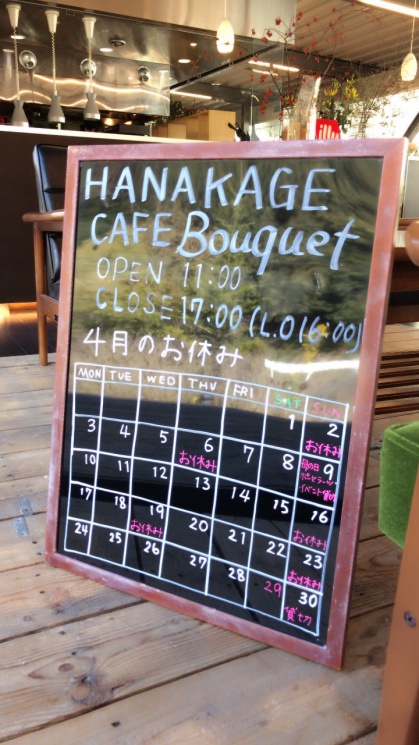 illy
HANAKAGE
CAFE Bouquet
OPEN 11:00
CLOSE 17:00 (L.O 16:00)
4月のお休み
MON TUE WED THU FRI SAT SUN
1 2
お休み
3 4 5 6 7 8 9
お休み 母の日
イベント貸切
10 11 12 13 14 15 16
お休み
17 18 19 20 21 22 23
お休み お休み
24 25 26 27 28 29 30
貸切